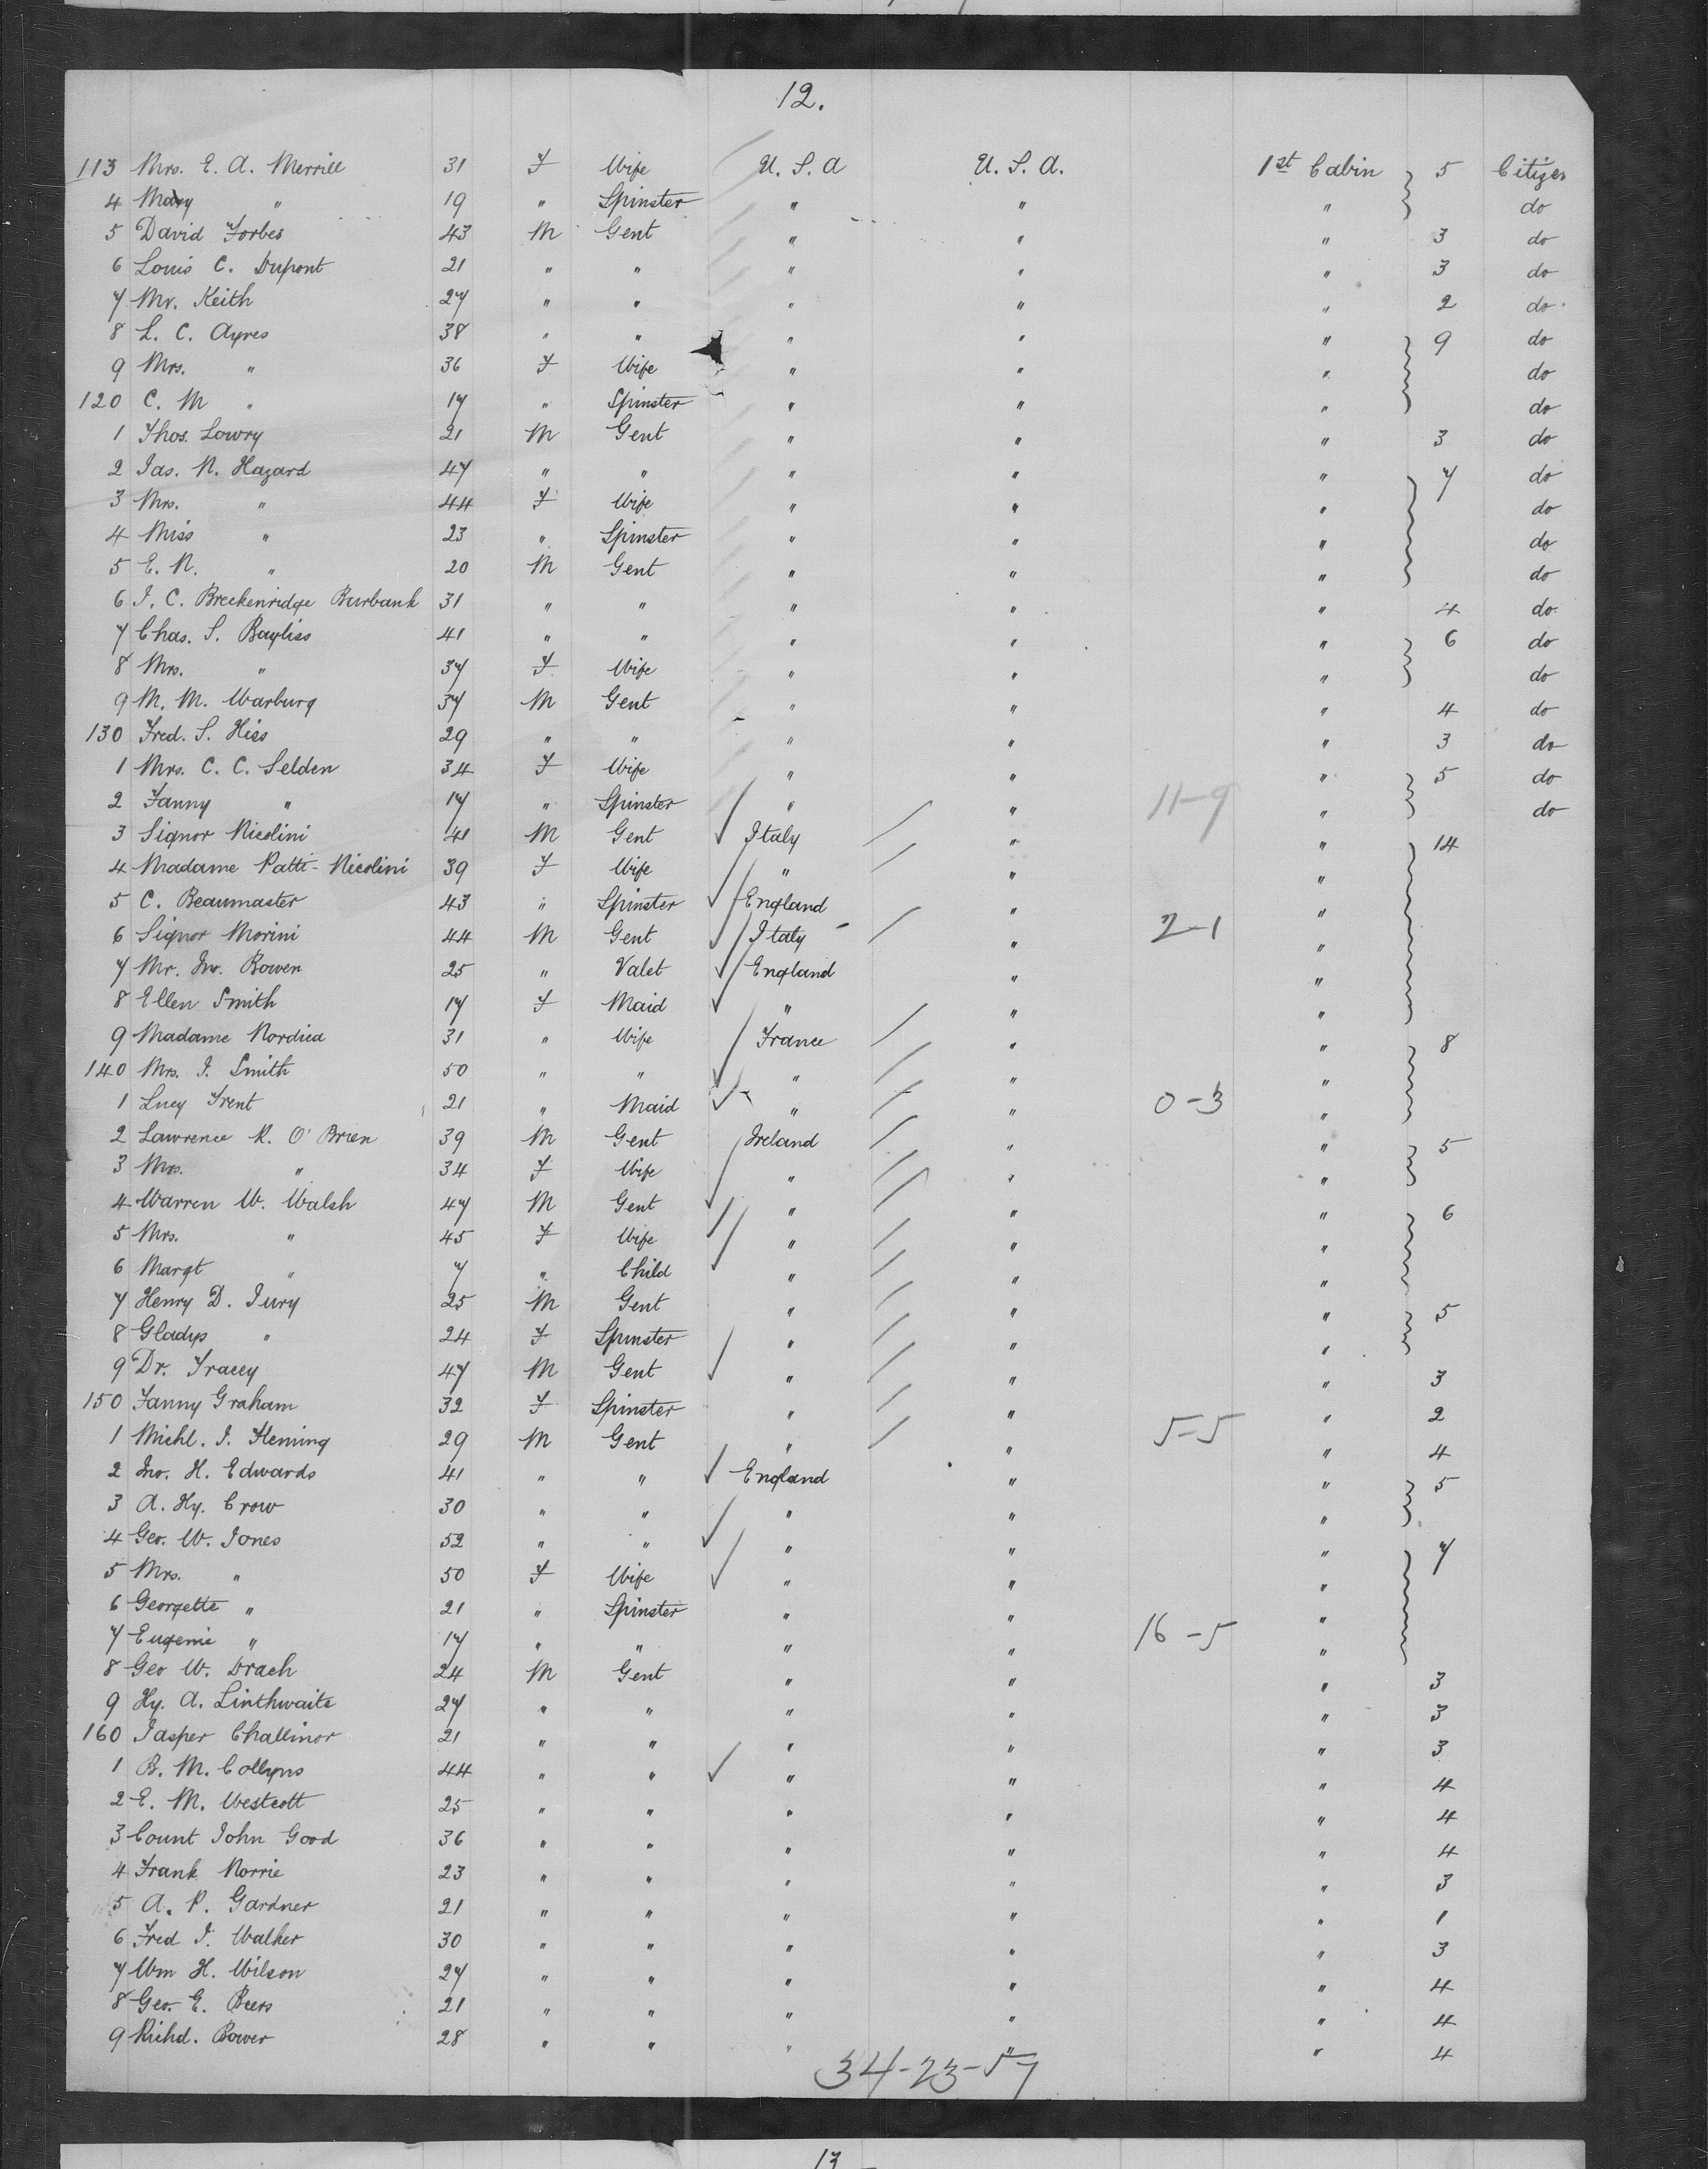 12.
113 Mrs. E. A. Merrill 31 F Wife U. S. A U. S. A. 1st Cabin 5 Citizen
4 Mary " 19 " Spinster " " " do
5 David Forbes 43 M Gent " " " 3 do
6 Louis C. Dupont 21 " " " " " 3 do
7 Mr. Keith 27 " " " " " 2 do
8 L. C. Ayres 38 " " " " " 9 do
9 Mrs. " 36 F Wife " " " do
120 C. M " 17 " Spinster " " " do
1 Thos. Lowry 21 M Gent " " " 3 do
2 Jas. N. Hazard 47 " " " " " 7 do
3 Mrs. " 44 F Wife " " " do
4 Miss " 23 " Spinster " " " do
5 E. N. " 20 M Gent " " " do
6 J. C. Breckenridge Burbank 31 " " " " " 4 do
7 Chas. S. Bayliss 41 " " " " " 6 do
8 Mrs. " 37 F Wife " " " do
9 M. M. Warburg 37 M Gent " " " 4 do
130 Fred. S. Hiss 29 " " " " " 3 do
1 Mrs. C. C. Selden 34 F Wife " " " 5 do
2 Fanny " 17 " Spinster " " 11-9 " do
3 Signor Nicolini 41 M Gent Italy " " 14
4 Madame Patti-Nicolini 39 F Wife " " "
5 C. Beaumaster 43 " Spinster England " "
6 Signor Morini 44 M Gent Italy " 2-1 "
7 Mr. Jno. Bowen 25 " Valet England " "
8 Ellen Smith 17 F Maid " " "
9 Madame Nordica 31 " Wife France " " 8
140 Mrs. J. Smith 50 " " " " "
1 Lucy Trent 21 " Maid " " 0-3 "
2 Lawrence R. O'Brien 39 M Gent Ireland " " 5
3 Mrs. " 34 F Wife " " "
4 Warren W. Walsh 47 M Gent " " " 6
5 Mrs. " 45 F Wife " " "
6 Margt " 7 " Child " " "
7 Henry D. Jury 25 M Gent " " " 5
8 Gladys " 24 F Spinster " " "
9 Dr. Tracey 47 M Gent " " " 3
150 Fanny Graham 32 F Spinster " " " 2
1 Michl. J. Fleming 29 M Gent " " 5-5 " 4
2 Jno. H. Edwards 41 " " England " " 5
3 A. Hy. Crow 30 " " " " "
4 Geo. W. Jones 52 " " " " " 7
5 Mrs. " 50 F Wife " " "
6 Georgette " 21 " Spinster " " "
7 Eugenie " 17 " " " " 16-5 "
8 Geo W. Drach 24 M Gent " " " 3
9 Hy. A. Linthwaite 27 " " " " " 3
160 Jasper Challinor 21 " " " " " 3
1 B. M. Collyns 44 " " " " " 4
2 E. M. Westcott 25 " " " " " 4
3 Count John Good 36 " " " " " 4
4 Frank Norrie 23 " " " " " 3
5 A. P. Gardner 21 " " " " " 1
6 Fred J. Walker 30 " " " " " 3
7 Wm H. Wilson 27 " " " " " 4
8 Geo. E. Beers 21 " " " " " 4
9 Richd. Bower 28 " " " " " 4
34-23-57
13